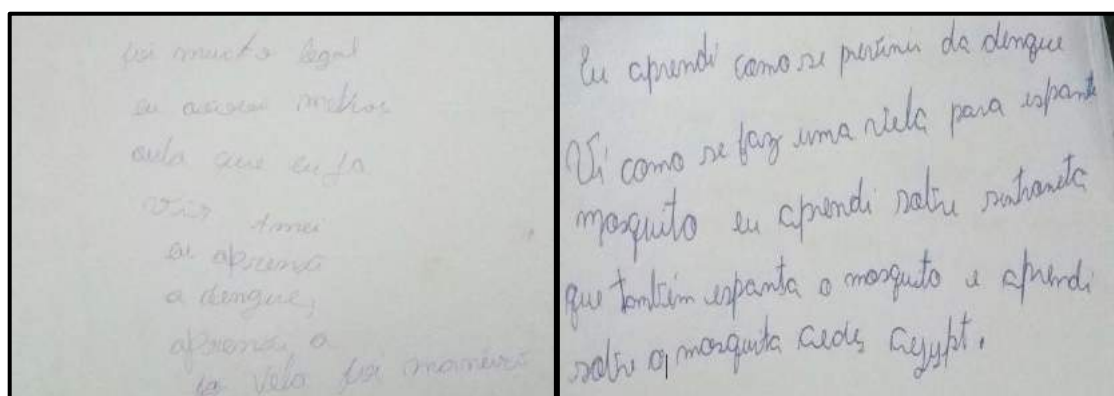 foi muito legal
eu melhor
aula que eu ja
vir
eu aprendi
a dengue,
aprendi a
vela foi maneiro
Eu aprendi como se previnir da dengue
Vi como se faz uma vela para espanta
mosquito eu aprendi sobre
que também espanta o mosquito e aprendi
sobre o mosquita aeds agypt.